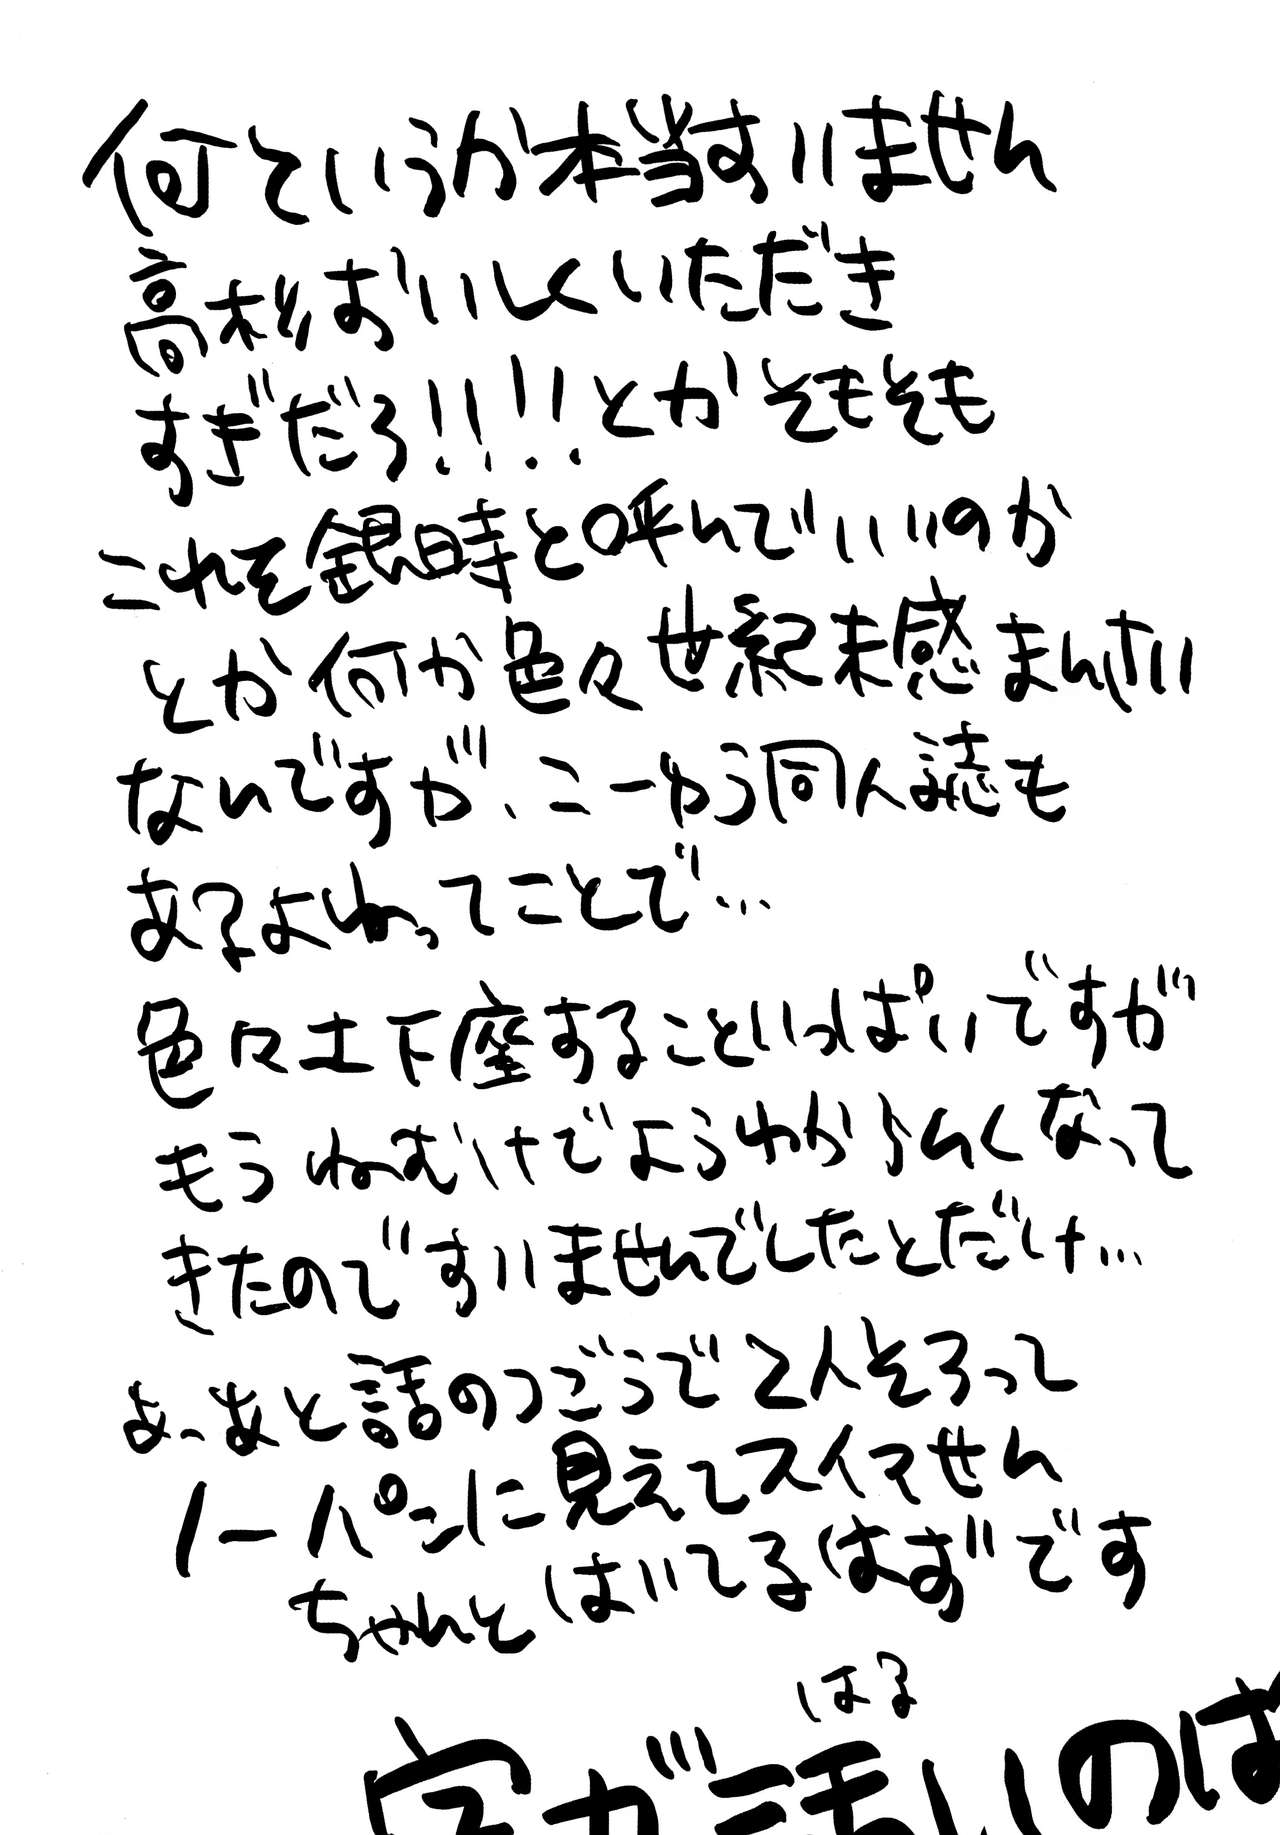 何というか本当すいません
高杉おいしくいただき
すぎだろ!!!!とかそもそも
これを銀時と呼んでいいのか
とか何か色々世紀末感まんさい
ないですが、こーゆう同人誌も
あるよねってことで…
色々土下座することいっぱいですが
もうねむけでようわからんくなって
きたのですいませんでしたとだけ…
あっあと話のつごうで2人そろって
ノーパンに見えてスイマせん
ちゃんとはいてるはずです
はる
字が
いのは